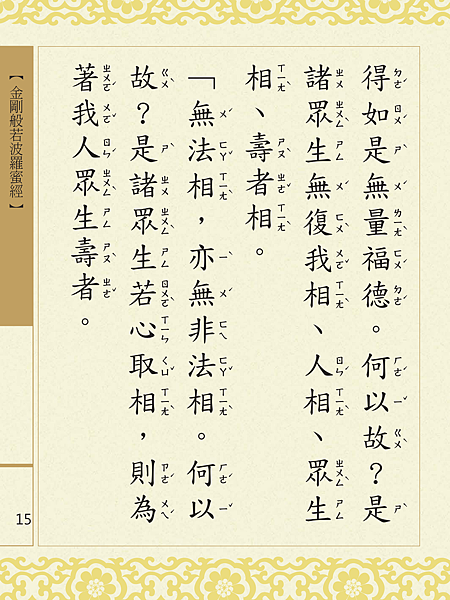 得如是無量福德。何以故？是
諸眾生無復我相、人相、眾生
相、壽者相。
「無法相，亦無非法相。何以
故？是諸眾生若心取相，則為
著我人眾生壽者。
【金剛般若波羅蜜經】
15